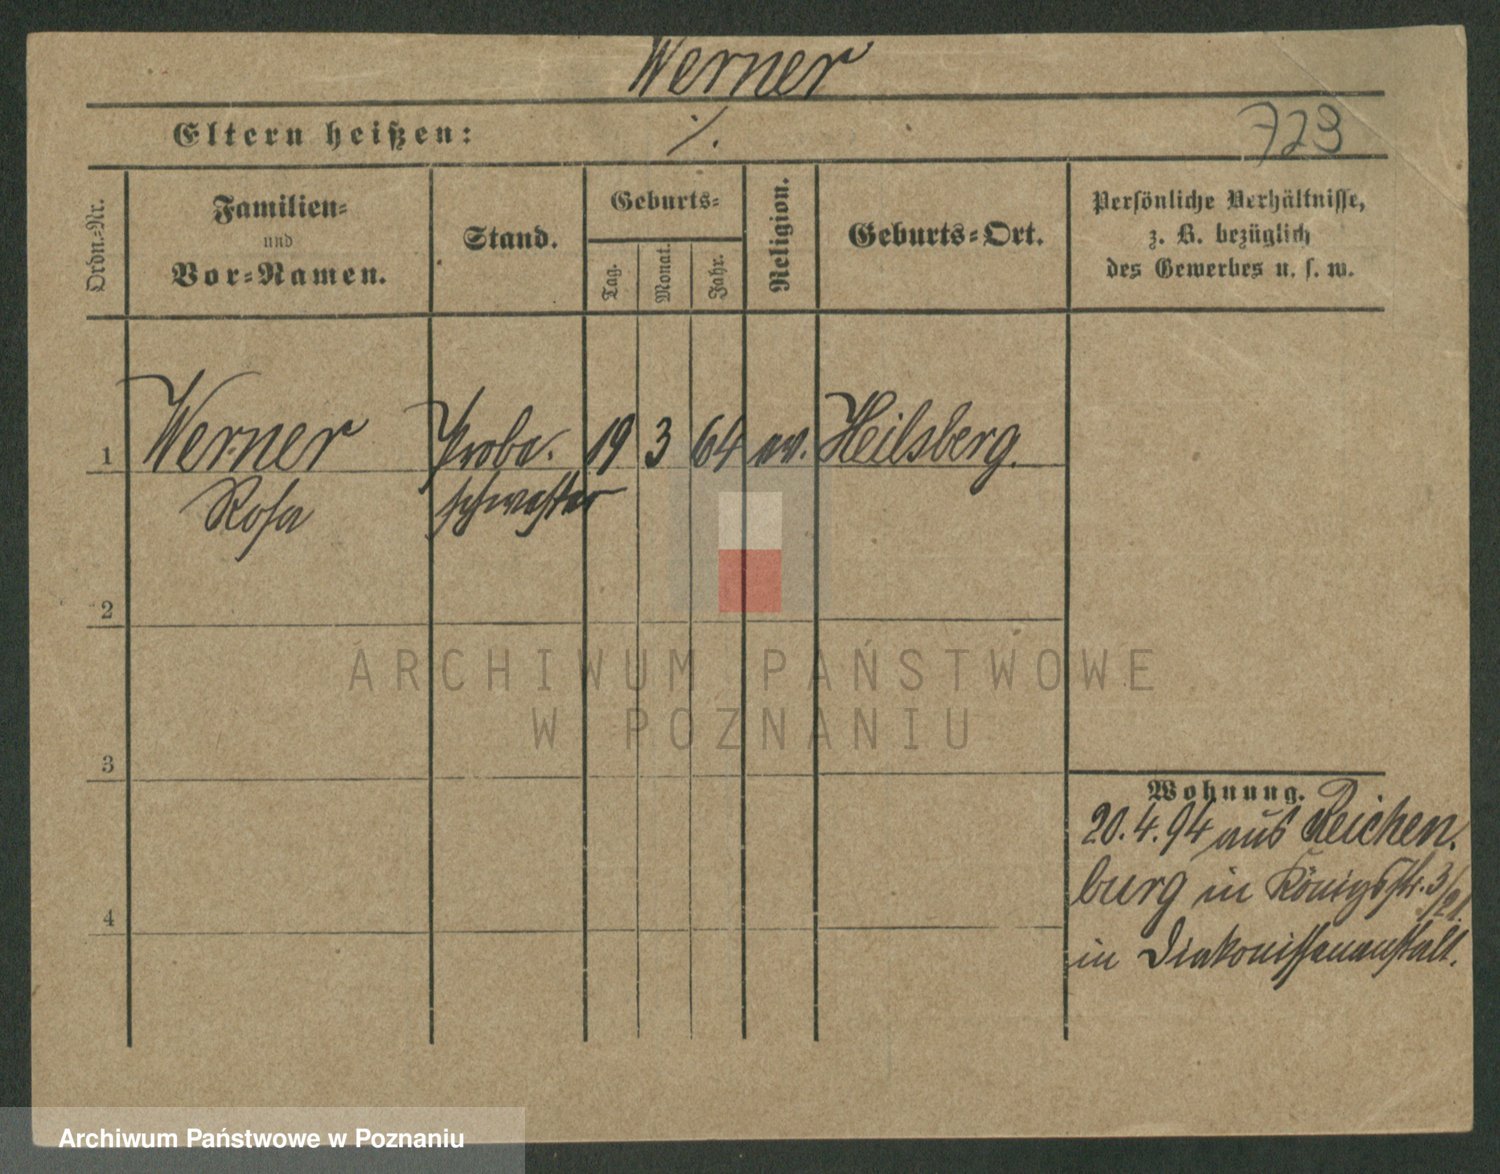 Werner
Eltern heißen: ·/.
723
Ordn.-Nr.
Familien-
und
Vor-Namen.
Stand.
Geburts-
Tag.
Monat.
Jahr.
Religion.
Geburts-Ort.
Persönliche Verhältnisse,
z. B. bezüglich
des Gewerbes u. s. w.
1 Werner Probe- 19 3 64 ev. Heilsberg.
Rosa schwester
2
3
4
Wohnung.
20.4.94 aus Reichen-
burg in Königsstr. 3/21.
in Diakonissenanstalt.
ARCHIWUM PAŃSTWOWE
W POZNANIU
Archiwum Państwowe w Poznaniu